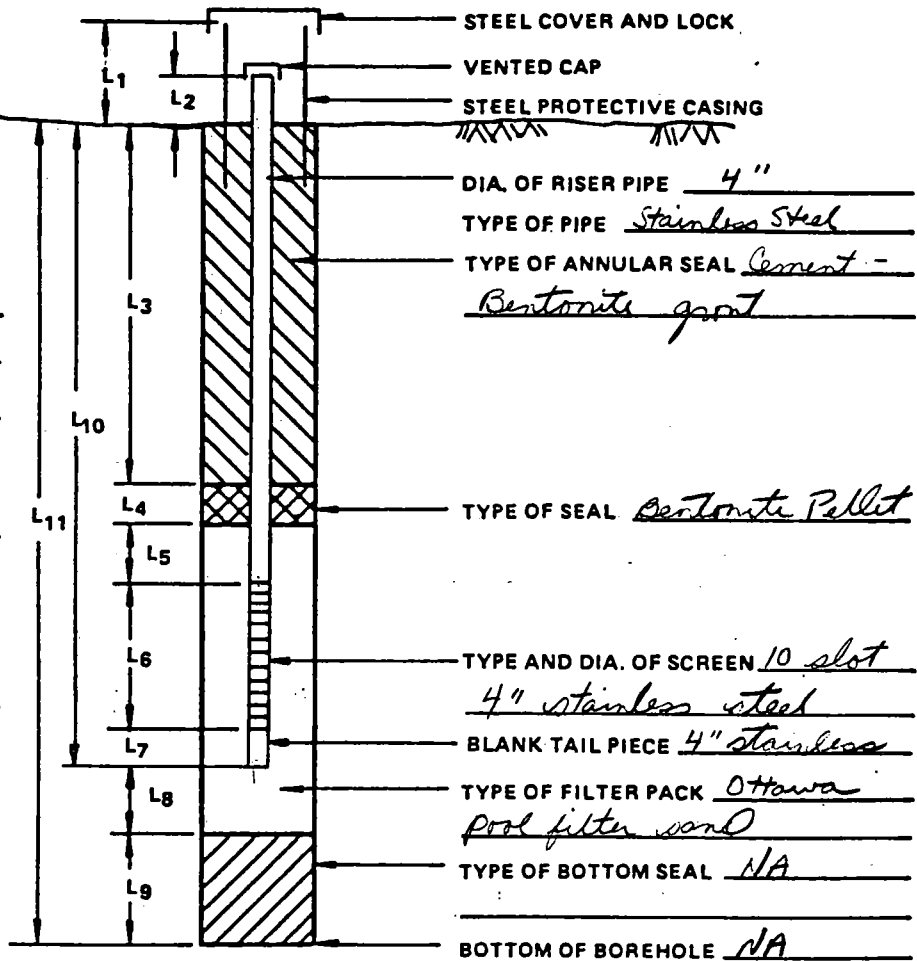 STEEL COVER AND LOCK
VENTED CAP
STEEL PROTECTIVE CASING
L1
L2
DIA. OF RISER PIPE 4"
TYPE OF PIPE Stainless Steel
TYPE OF ANNULAR SEAL Cement -
Bentonite grout
L3
L10
L11
L4
TYPE OF SEAL Bentonite Pellet
L5
L6
TYPE AND DIA. OF SCREEN 10 slot
4" stainless steel
L7
BLANK TAIL PIECE 4" stainless
L8
TYPE OF FILTER PACK Ottawa
pool filter sand
TYPE OF BOTTOM SEAL NA
L9
BOTTOM OF BOREHOLE NA